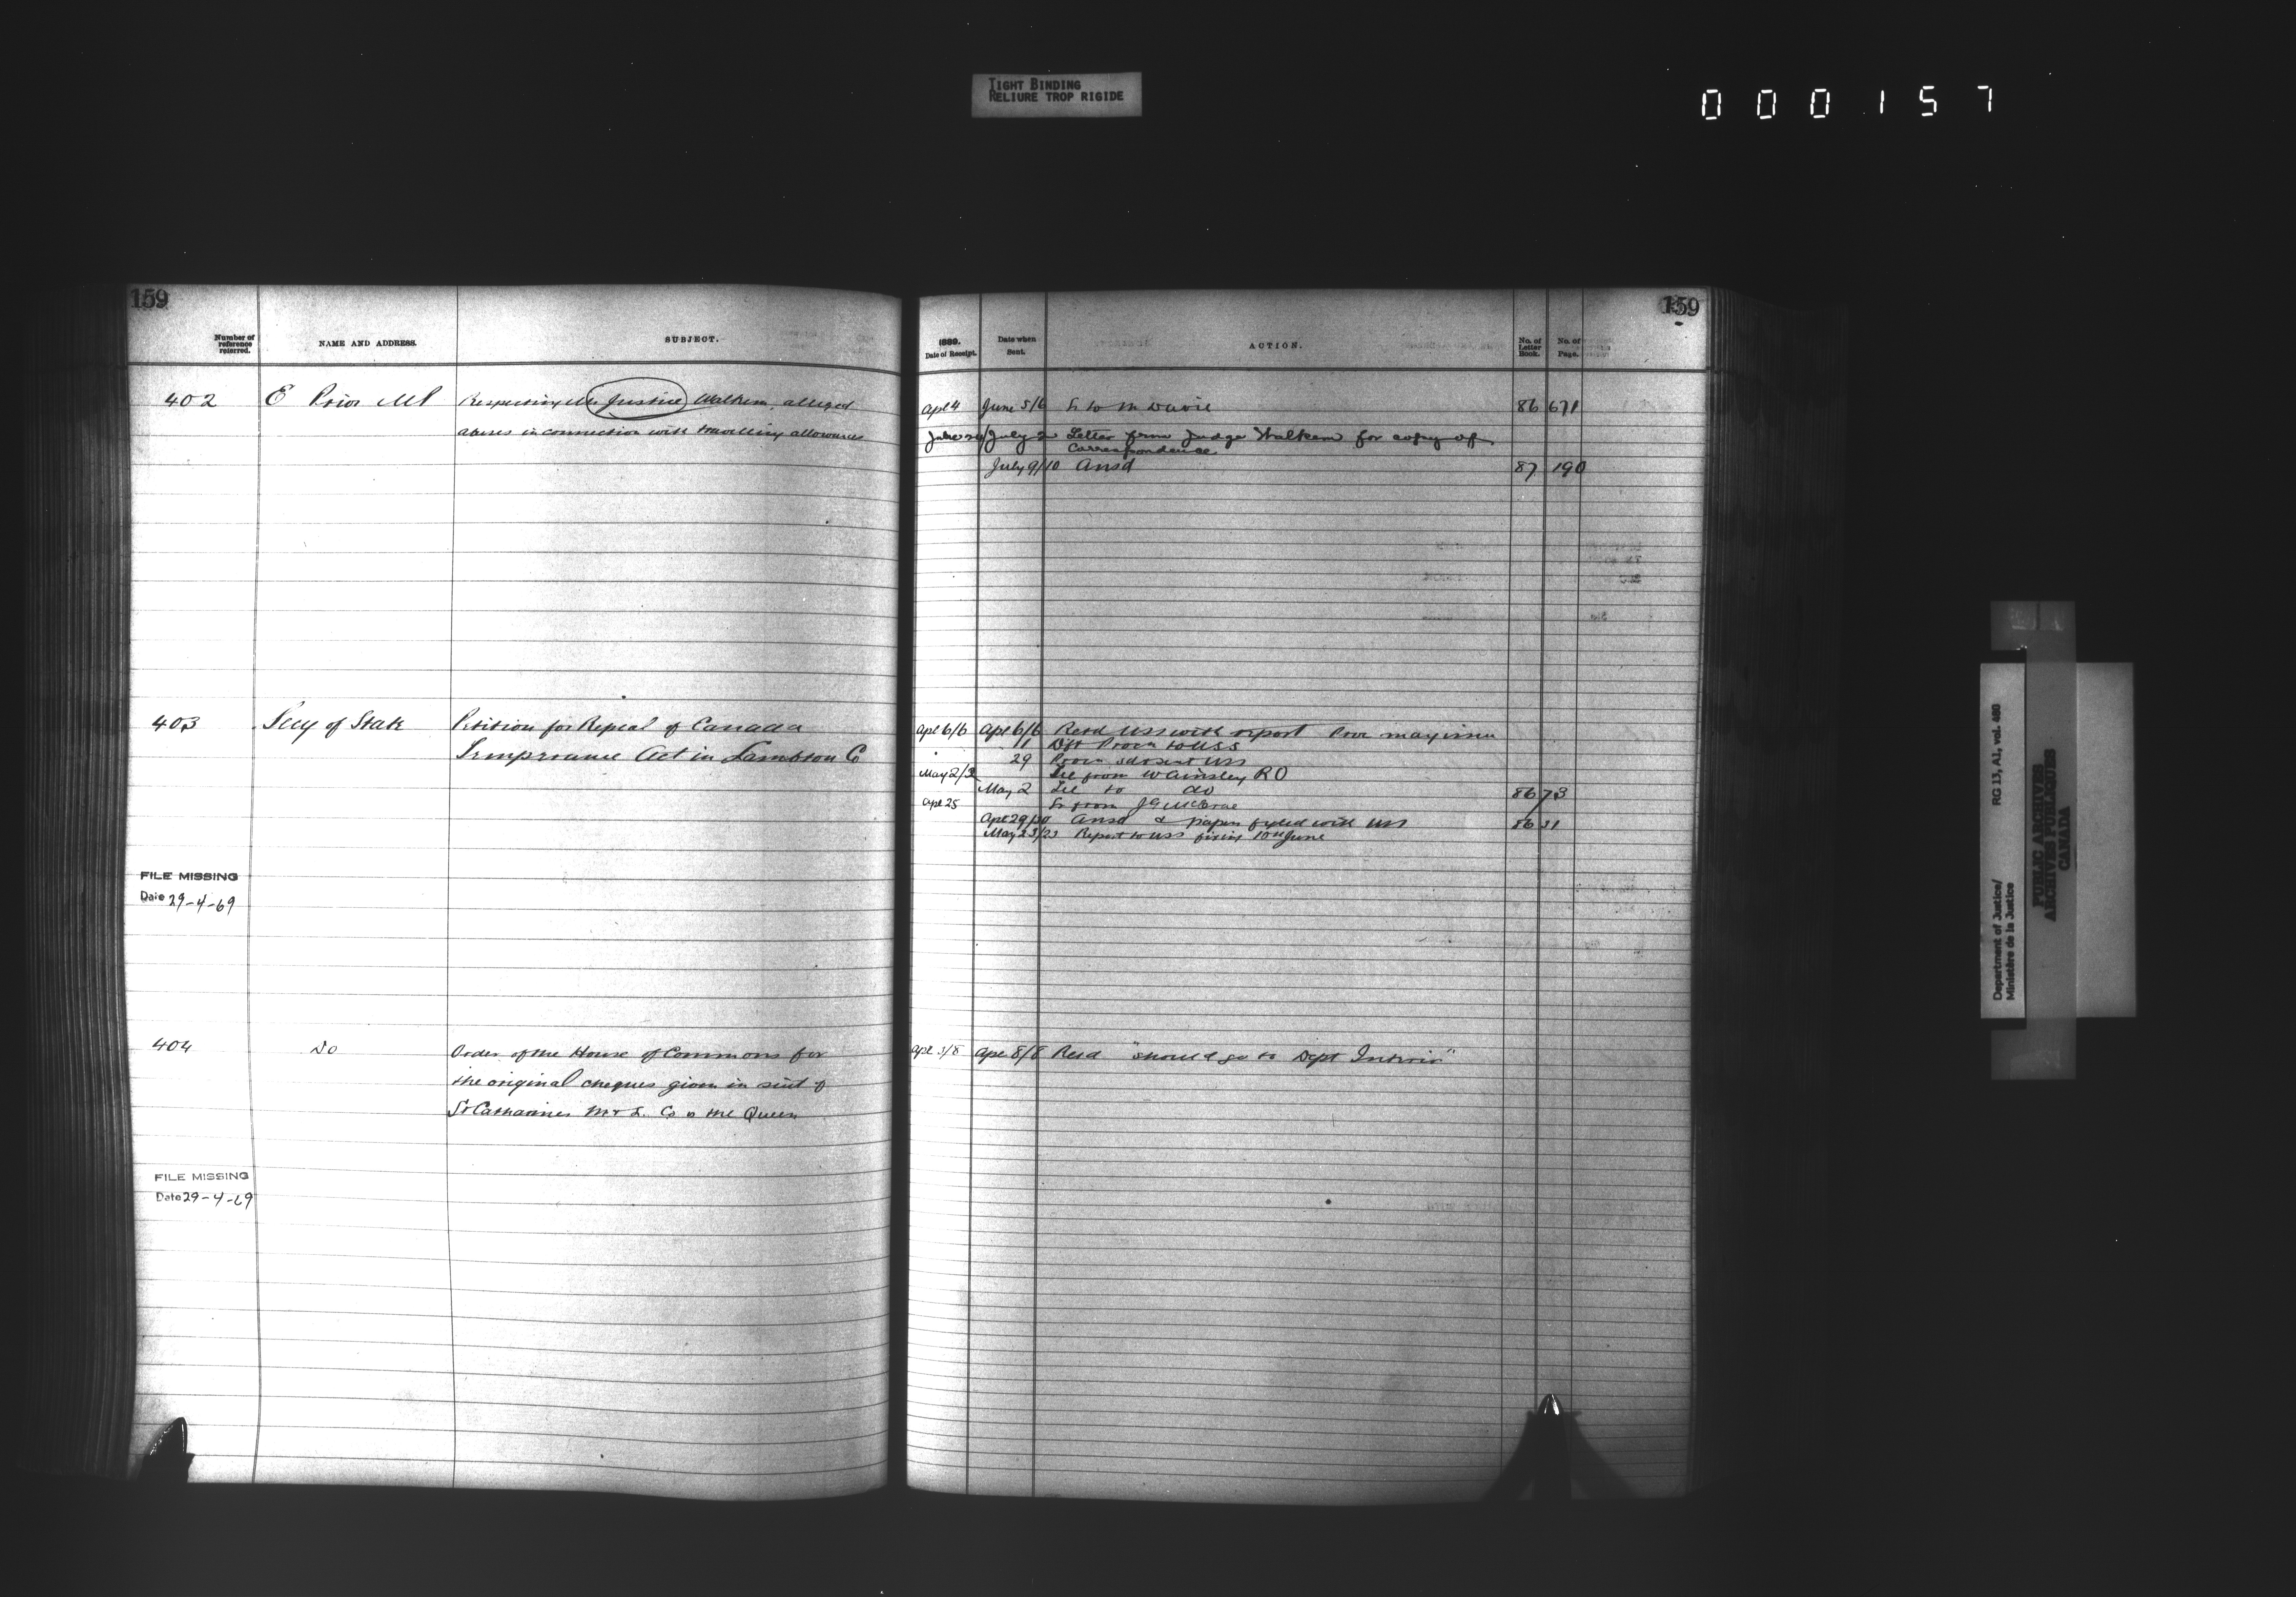 TIGHT BINDING
RELIURE TROP RIGIDE
000157
159
159
Number of reference referred.
NAME AND ADDRESS.
SUBJECT.
1889.
Date of Receipt.
Date when Sent.
ACTION.
No. of Letter Book.
No. of Page.
402 E Prior MP Respecting Mr Justice Walkem alleged
abuses in connection with travelling allowances
Apl 4 June 5/6 Lr to M Davie 86 671
July 2 Letter from Judge Walkem for copy of
Correspondence
July 9/10 Ansd 87 190
403 Secy of State Petition for Repeal of Canada
Temperance Act in Lambton Co
Apl 6/6 Apl 6/6 Retd USS with report Proc may issue
11 Dft Procn to USS
29 Procn USS
May 2/3 Tel from Wainsley RO
May 2 Tel to do 86 73
Apl 25 Lr from J G McCrae
Apl 29/30 Ansd & papers fyled with USS 86 31
May 23/23 Report to USS fixing 10th June
FILE MISSING
Date 29-4-69
404 Do Order of the House of Commons for
the original cheques given in suit of
St Catharines M & L. Co v the Queen
Apl 3/8 Apl 8/8 Retd "should go to Dept Interior"
FILE MISSING
Date 29-4-69
Department of Justice/
Ministère de la Justice
RG 13, A1, vol. 480
PUBLIC ARCHIVES
ARCHIVES PUBLIQUES
CANADA